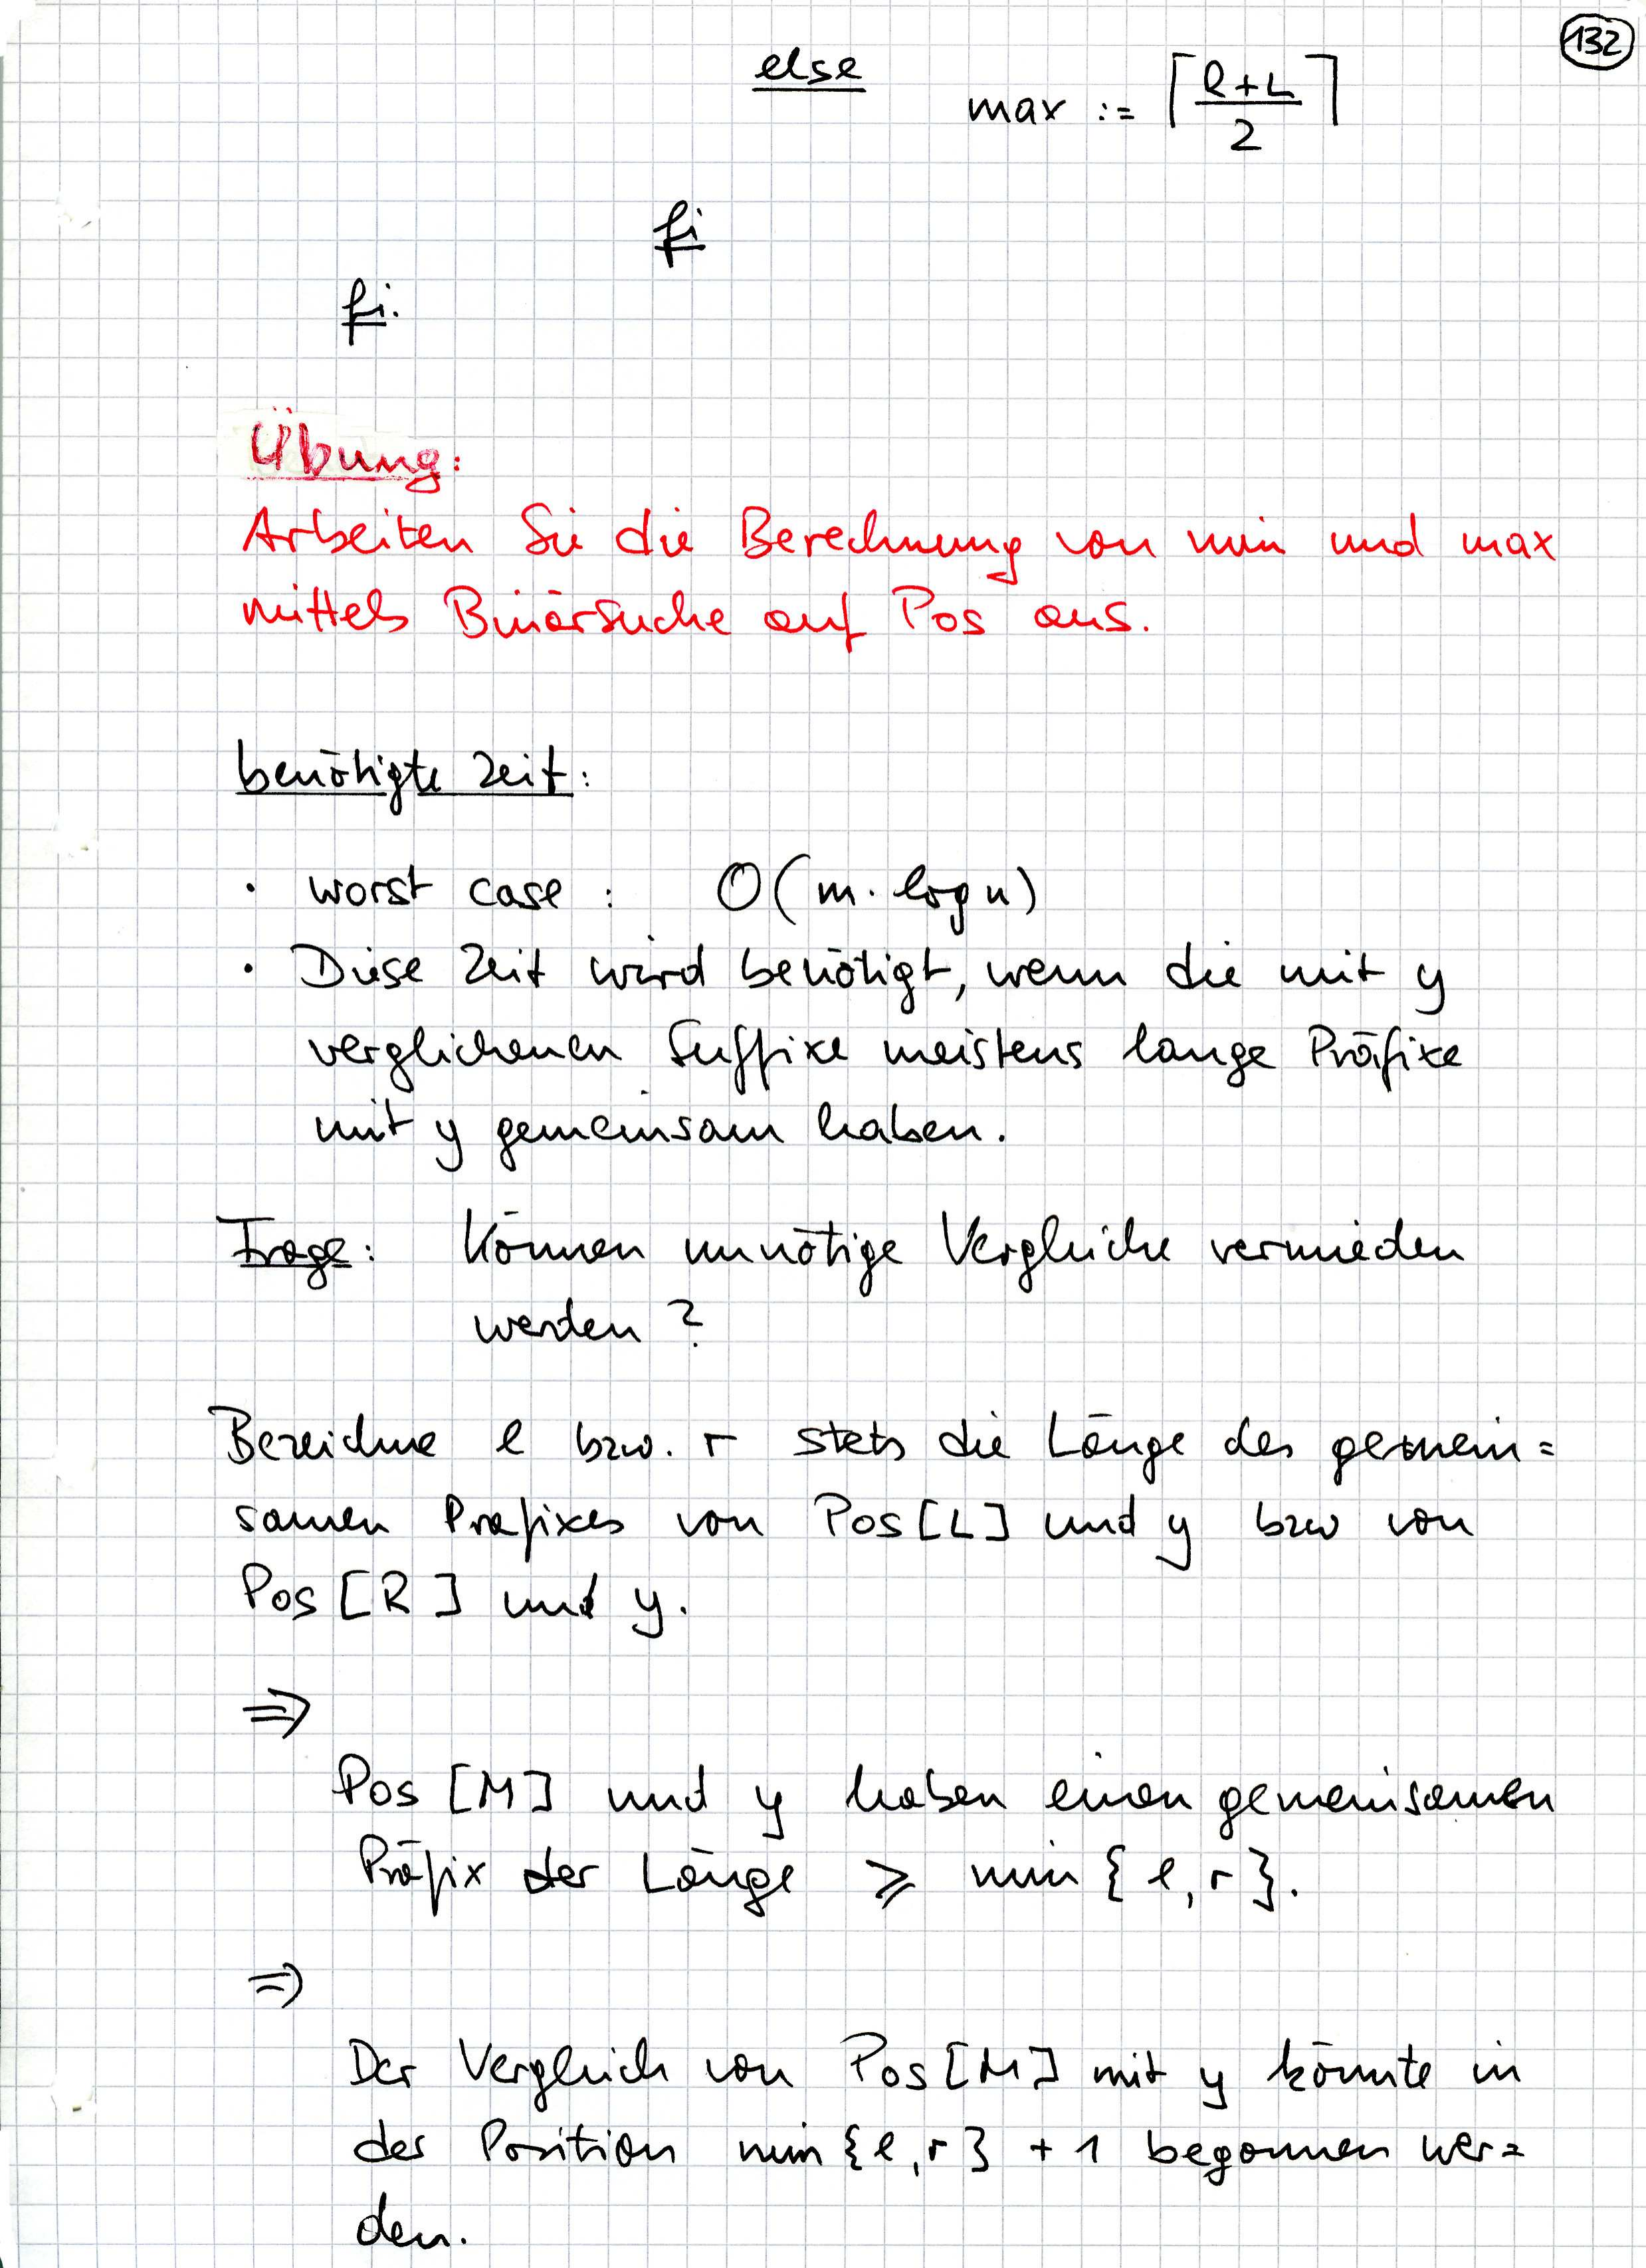 132
else
max := ⌈(R+L)/2⌉
fi
fi.
Übung:
Arbeiten Sie die Berechnung von min und max
mittels Binärsuche auf Pos aus.
benötigte Zeit:
· worst case : O(m · log n)
· Diese Zeit wird benötigt, wenn die mit y
verglichenen Suffixe meistens lange Präfixe
mit y gemeinsam haben.
Frage: Können unnötige Vergleiche vermieden
werden ?
Bezeichne l bzw. r stets die Länge des gemein=
samen Präfixes von Pos[L] und y bzw von
Pos[R] und y.
⇒
Pos[M] und y haben einen gemeinsamen
Präfix der Länge ≥ min{l,r}.
⇒
Der Vergleich von Pos[M] mit y könnte in
der Position min{l,r} + 1 begonnen wer=
den.